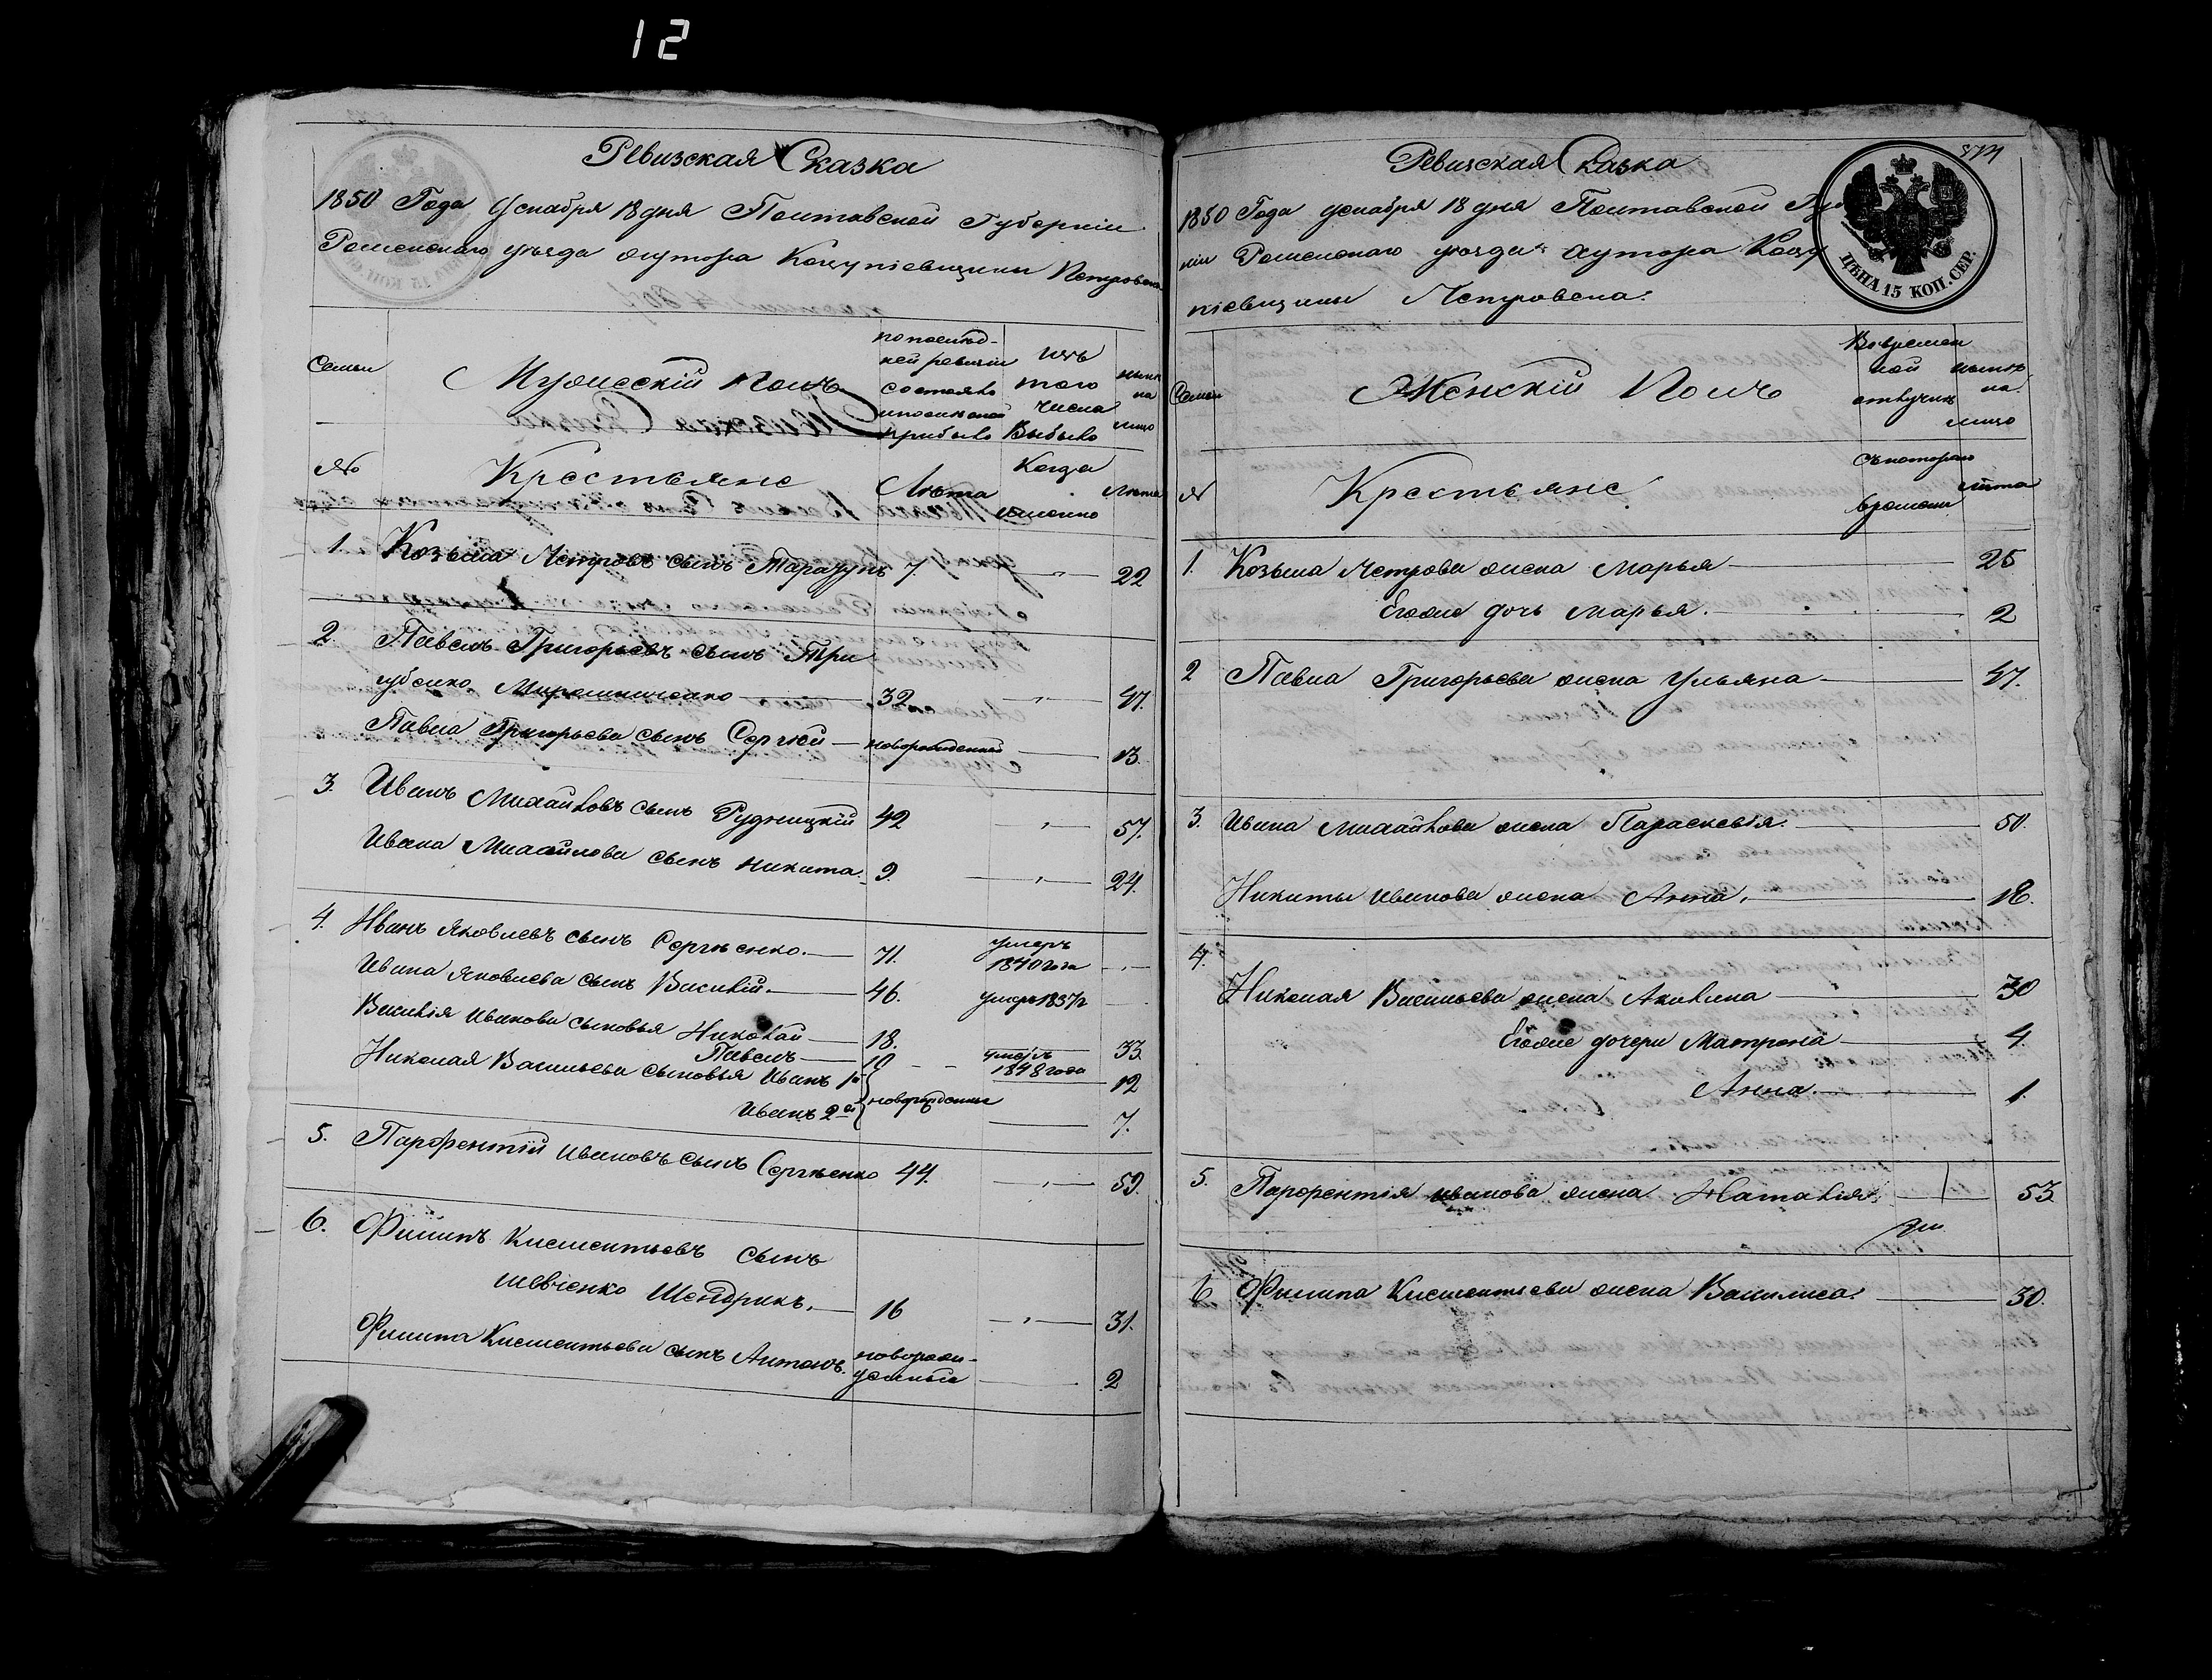 12
Ревизская Сказка
1850 Года Декабря 18 дня Полтавской Губерніи
Роменскаго уѣзда хутора Коцупіевщины Петровска
Семьи
Мужескій полъ
по послѣд-
ней ревизіи
состояло
и послѣ оной
прибыло
изъ
того
числа
выбыло
нынѣ
на
лицо
№
Крестьяне
Лѣта
Когда
именно
Лѣта
1. Козьма Петровъ сынъ Тарапунъ 7. — " — 22
2. Павелъ Григорьевъ сынъ Три
губенко Мирошниченко — 32. — " — 47.
Павла Григорьева сынъ Сергѣй — новорожденный — 13.
3. Иванъ Михайловъ сынъ Рудницкій 42 — " — 57.
Ивана Михайлова сынъ Никита. 9. — " — 24.
4. Иванъ Яковлевъ сынъ Сергѣенко. — 71. умеръ 1840 года — " —
Ивана Яковлева сынъ Василій. — 46. умеръ 1837 г —
Василія Иванова сыновья Николай — 18. — 33
Павелъ — 10 умеръ 1848 года
Николая Васильева сыновья Иванъ 1й } новорожденные — 12
Иванъ 2ой } — 7.
5. Парфентій Ивановъ сынъ Сергѣенко 44. — " — 59.
6. Филипъ Климентьевъ сынъ
Шевченко Шендрикъ. — 16 — " — 31.
Филипа Климентьева сынъ Антонъ. новорож-
денный — 2
Ревизская Сказка
874
1850 Года Декабря 18 дня Полтавской Губер
ніи Роменскаго уѣзда хутора Коцу
піевщины Петровска.
ЦѢНА 15 КОП. СЕР.
Семьи
Женскій Полъ
Во времен
ной
отлучкѣ
нынѣ
на
лицо
№
Крестьяне
Съ котораго
времени
лѣта
1. Козьмы Петрова жена Марья — 25
Егоже дочь Марья. — 2
2 Павла Григорьева жена Ульяна — 47.
3. Ивана Михайлова жена Параскевія. — 50.
Никиты Иванова жена Анна. — 18.
4.
Николая Васильева жена Акилина — 30
Егоже дочери Матрона — 4.
Анна. — 1.
5. Парфентія Иванова жена Наталія. — 53
6 Филипа Климентьева жена Василиса. — 30.